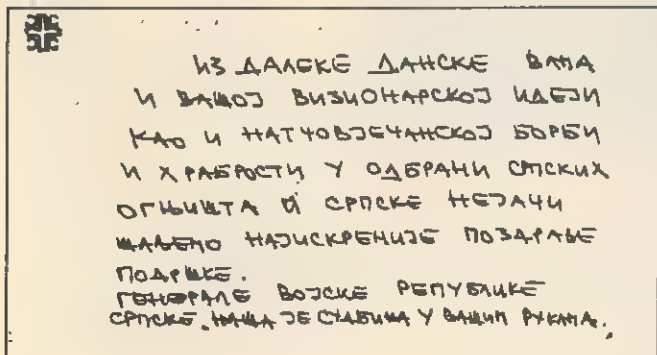 ИЗ ДАЛЕКЕ ДАНСКЕ ВАМА
И ВАШОЈ ВИЗИОНАРСКОЈ ИДЕЈИ
КАО И НАТЧОВЈЕЧАНСКОЈ БОРБИ
И ХРАБРОСТИ У ОДБРАНИ СРПСКИХ
ОГЊИШТА И СРПСКЕ НЕЈАЧИ
ШАЉЕМО НАЈИСКРЕНИЈЕ ПОЗДРАВЕ
ПОДРШКЕ.
ГЕНЕРАЛЕ ВОЈСКЕ РЕПУБЛИКЕ
СРПСКЕ. НАША ЈЕ СУДБИНА У ВАШИМ РУКАМА.